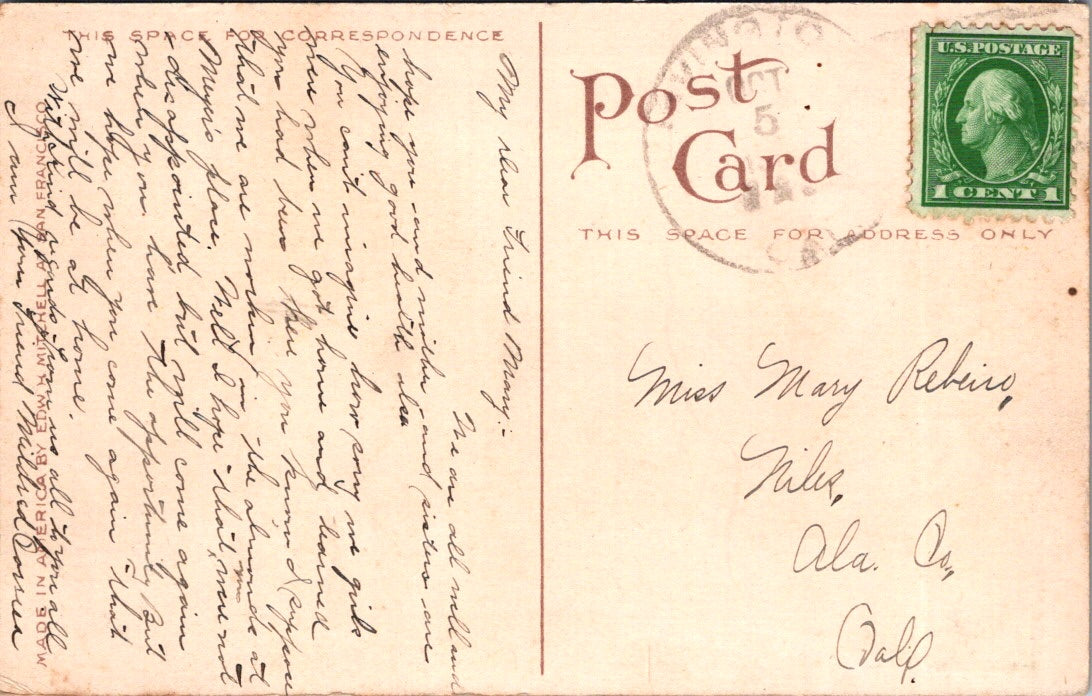 THIS SPACE FOR CORRESPONDENCE
My dear Friend Mary:-
We are all well and
hope you and mother and sisters are
enjoying good health also
You can't imagine how sorry we girls
were when we got home and learned
you had been here you know I suppose
that we are working in the almonds at
Meyers place. Well I hope that you were not
disappointed but will come again
when you have the opportunity But
we hope when you come again that
we will be at home.
With kind regards from us all to you all
I am your Friend Mildred
MADE IN AMERICA BY EDW. H. MITCHELL, SAN FRANCISCO
Post
Card
THIS SPACE FOR ADDRESS ONLY
OCT
5
CAL
U.S. POSTAGE
1 CENT 1
Miss Mary Rebeiro,
Niles,
Ala. Co.,
Calif